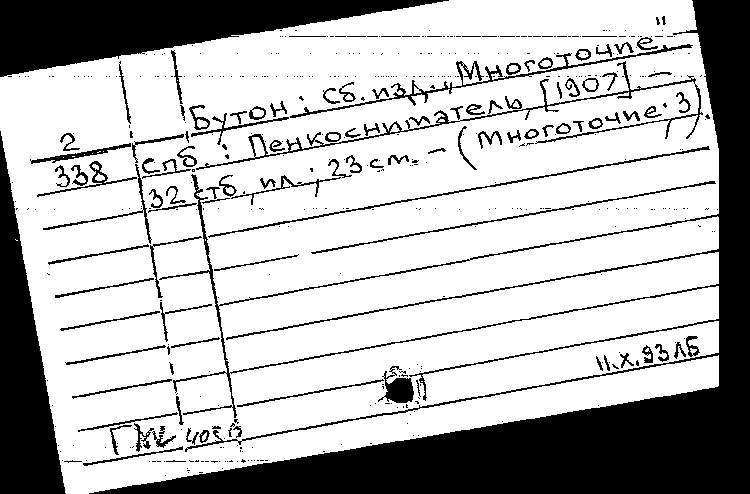 Бутон : Сб. изд. „Многоточие."
2
338
спб. : Пенкосниматель, [1907]. –
32 стб., ил. ; 23 см. – (Многоточие ; 3).
11.X.93 ЛБ